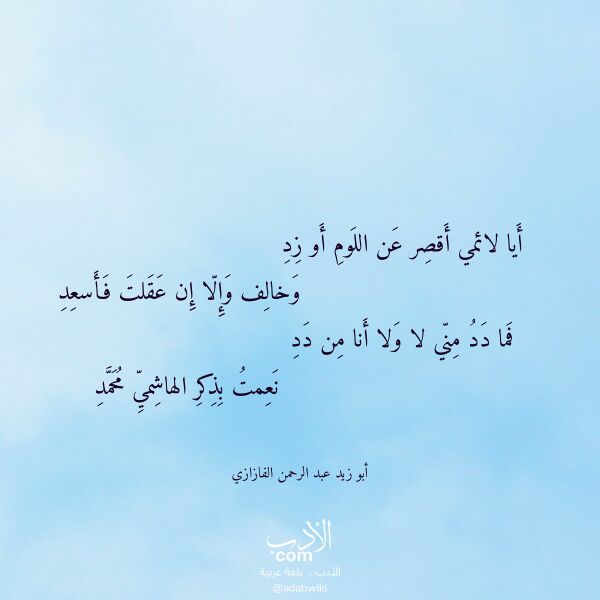 أَيا لائمي أَقصِر عَن اللَومِ أَو زِدِ
وَخالِف وَإِلّا إِن عَقَلتَ فَأَسعِدِ
فَما دَدُ مِنّي لا وَلا أَنا مِن دَدِ
نَعِمتُ بِذِكرِ الهاشِميِّ مُحَمَّدِ
أبو زيد عبد الرحمن الفازازي
الأدب
com
الأدب .. بلغة عربية
@adabwiki